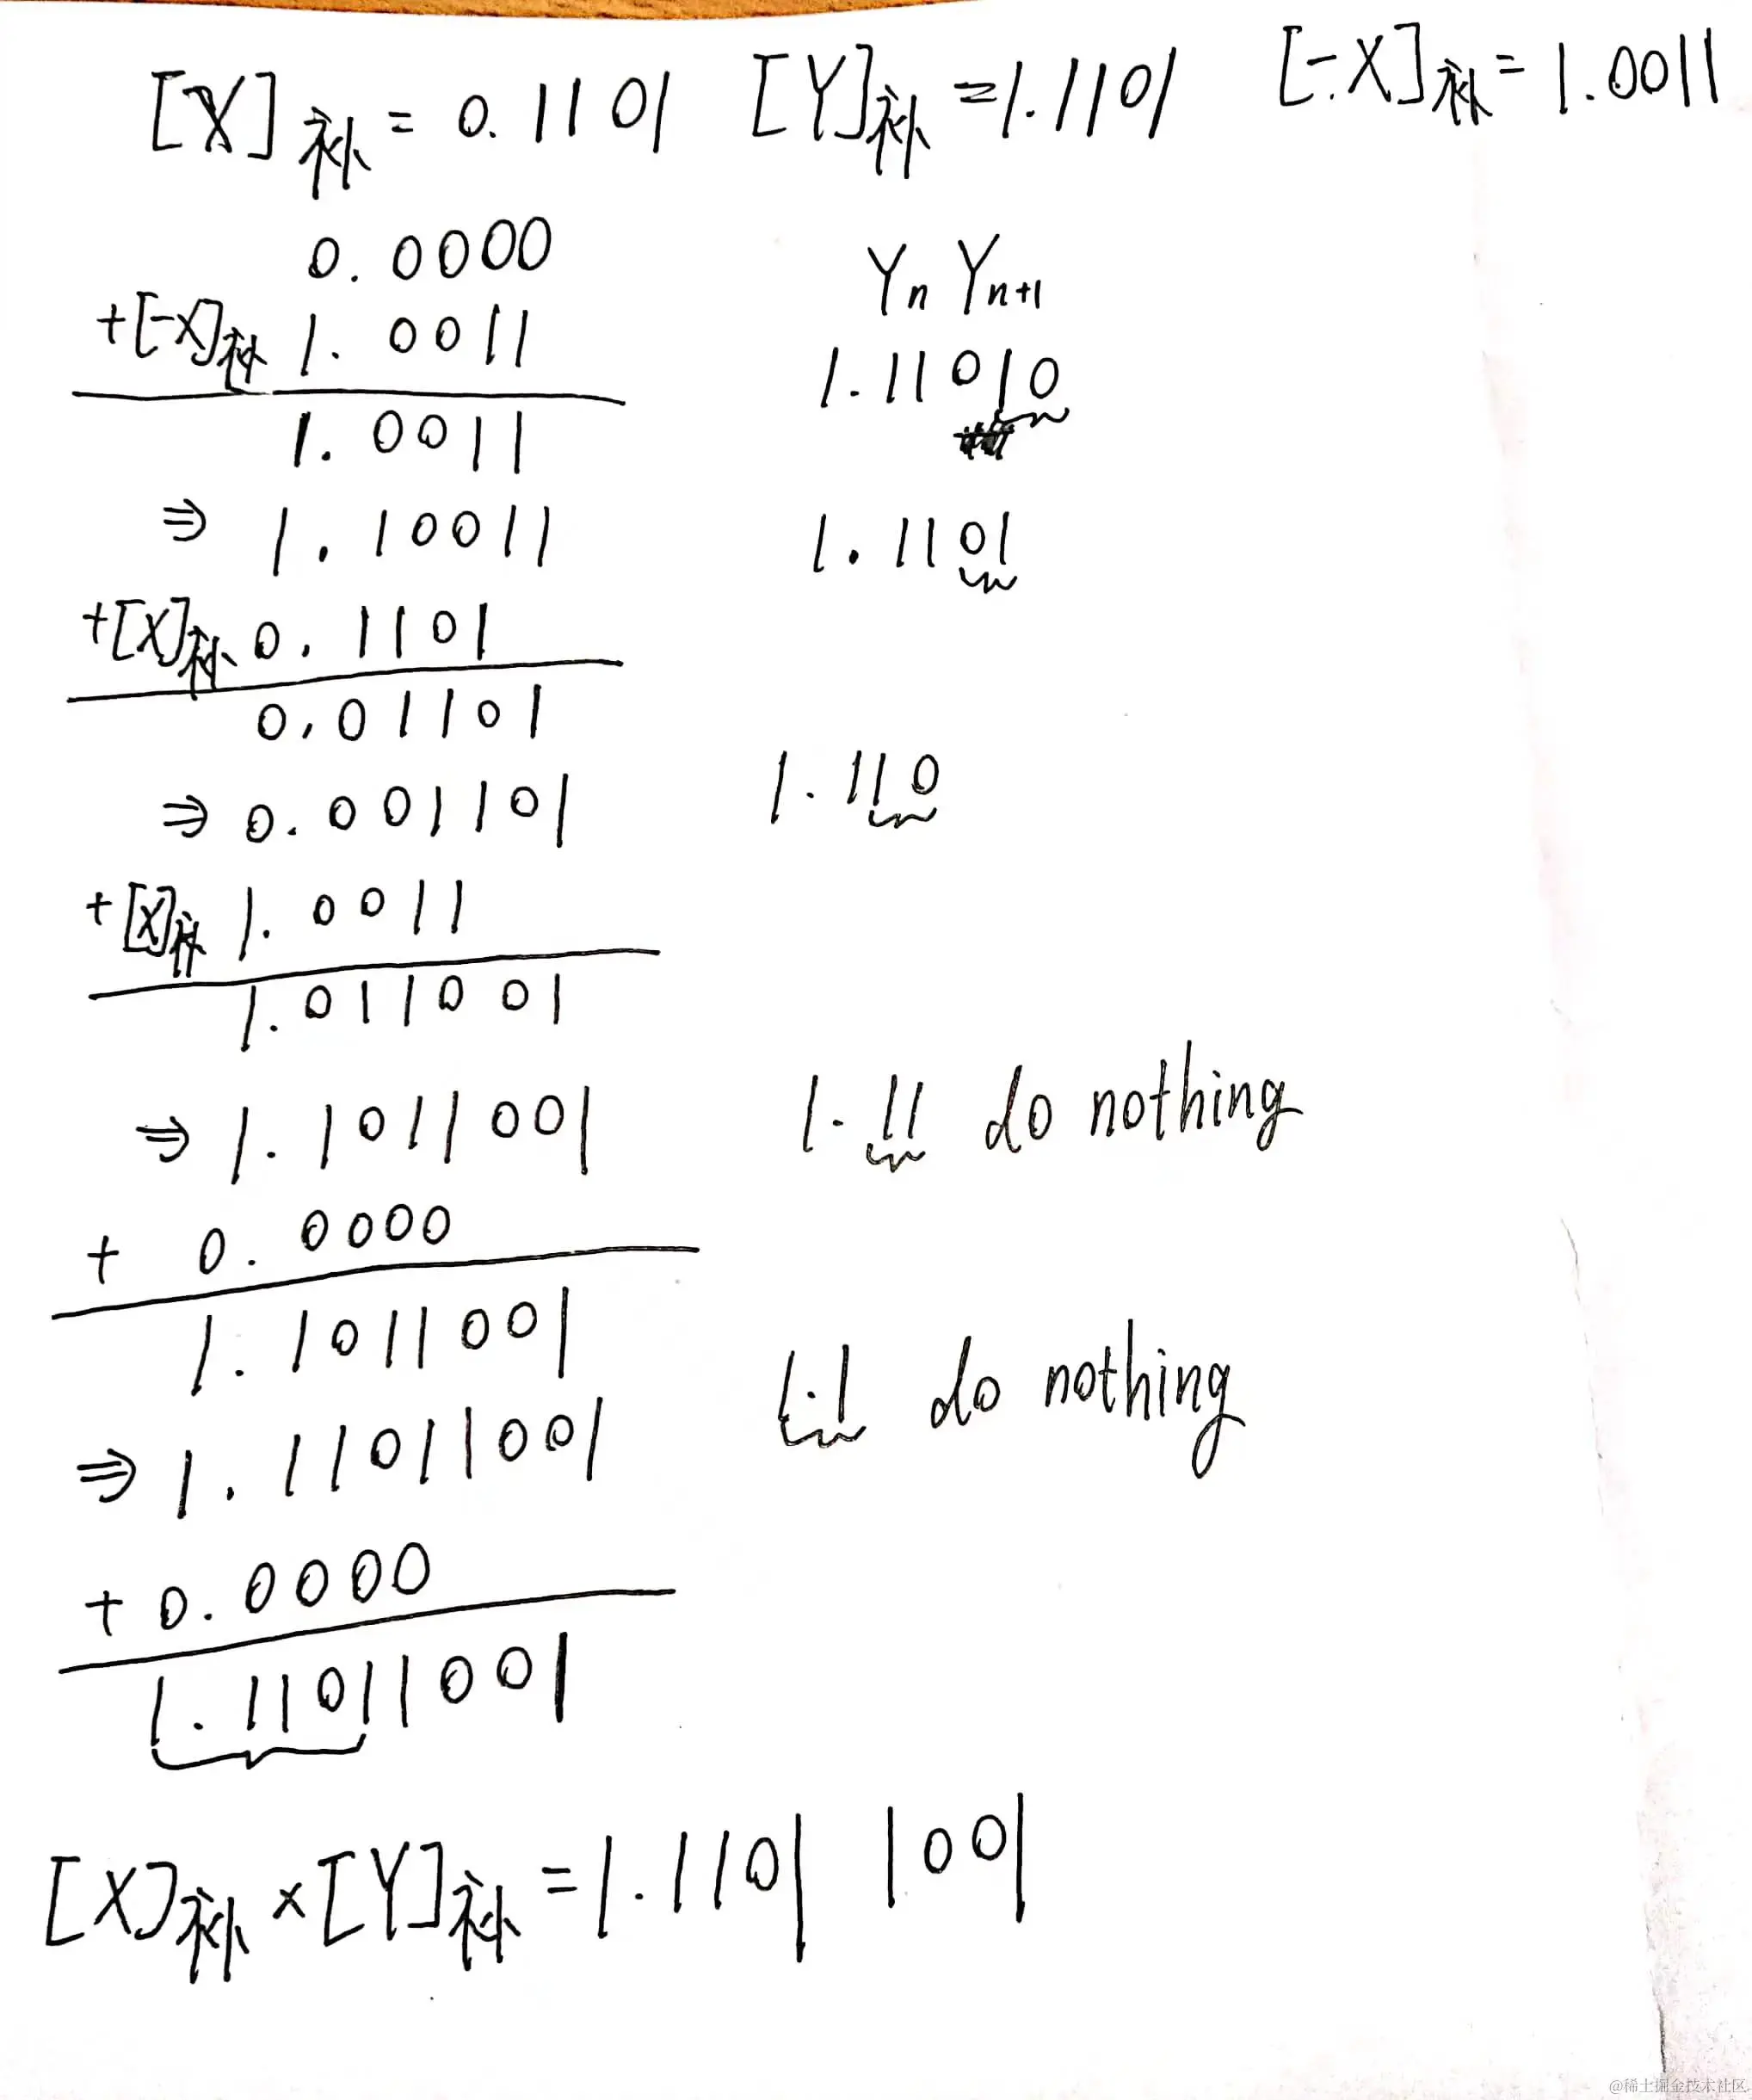 [X]补 = 0.1101 [Y]补 = 1.1101 [-X]补 = 1.0011
0.0000 Yn Yn+1
+[-X]补 1.0011 1.11010
1.0011
⇒ 1.10011 1.1101
+[X]补 0.1101
0.01101
⇒ 0.001101 1.110
+[X]补 1.0011
1.011001
⇒ 1.1011001 1.11 do nothing
+ 0.0000
1.1011001 1.1 do nothing
⇒ 1.11011001
+ 0.0000
1.11011001
[X]补 × [Y]补 = 1.1101 1001
@稀土掘金技术社区